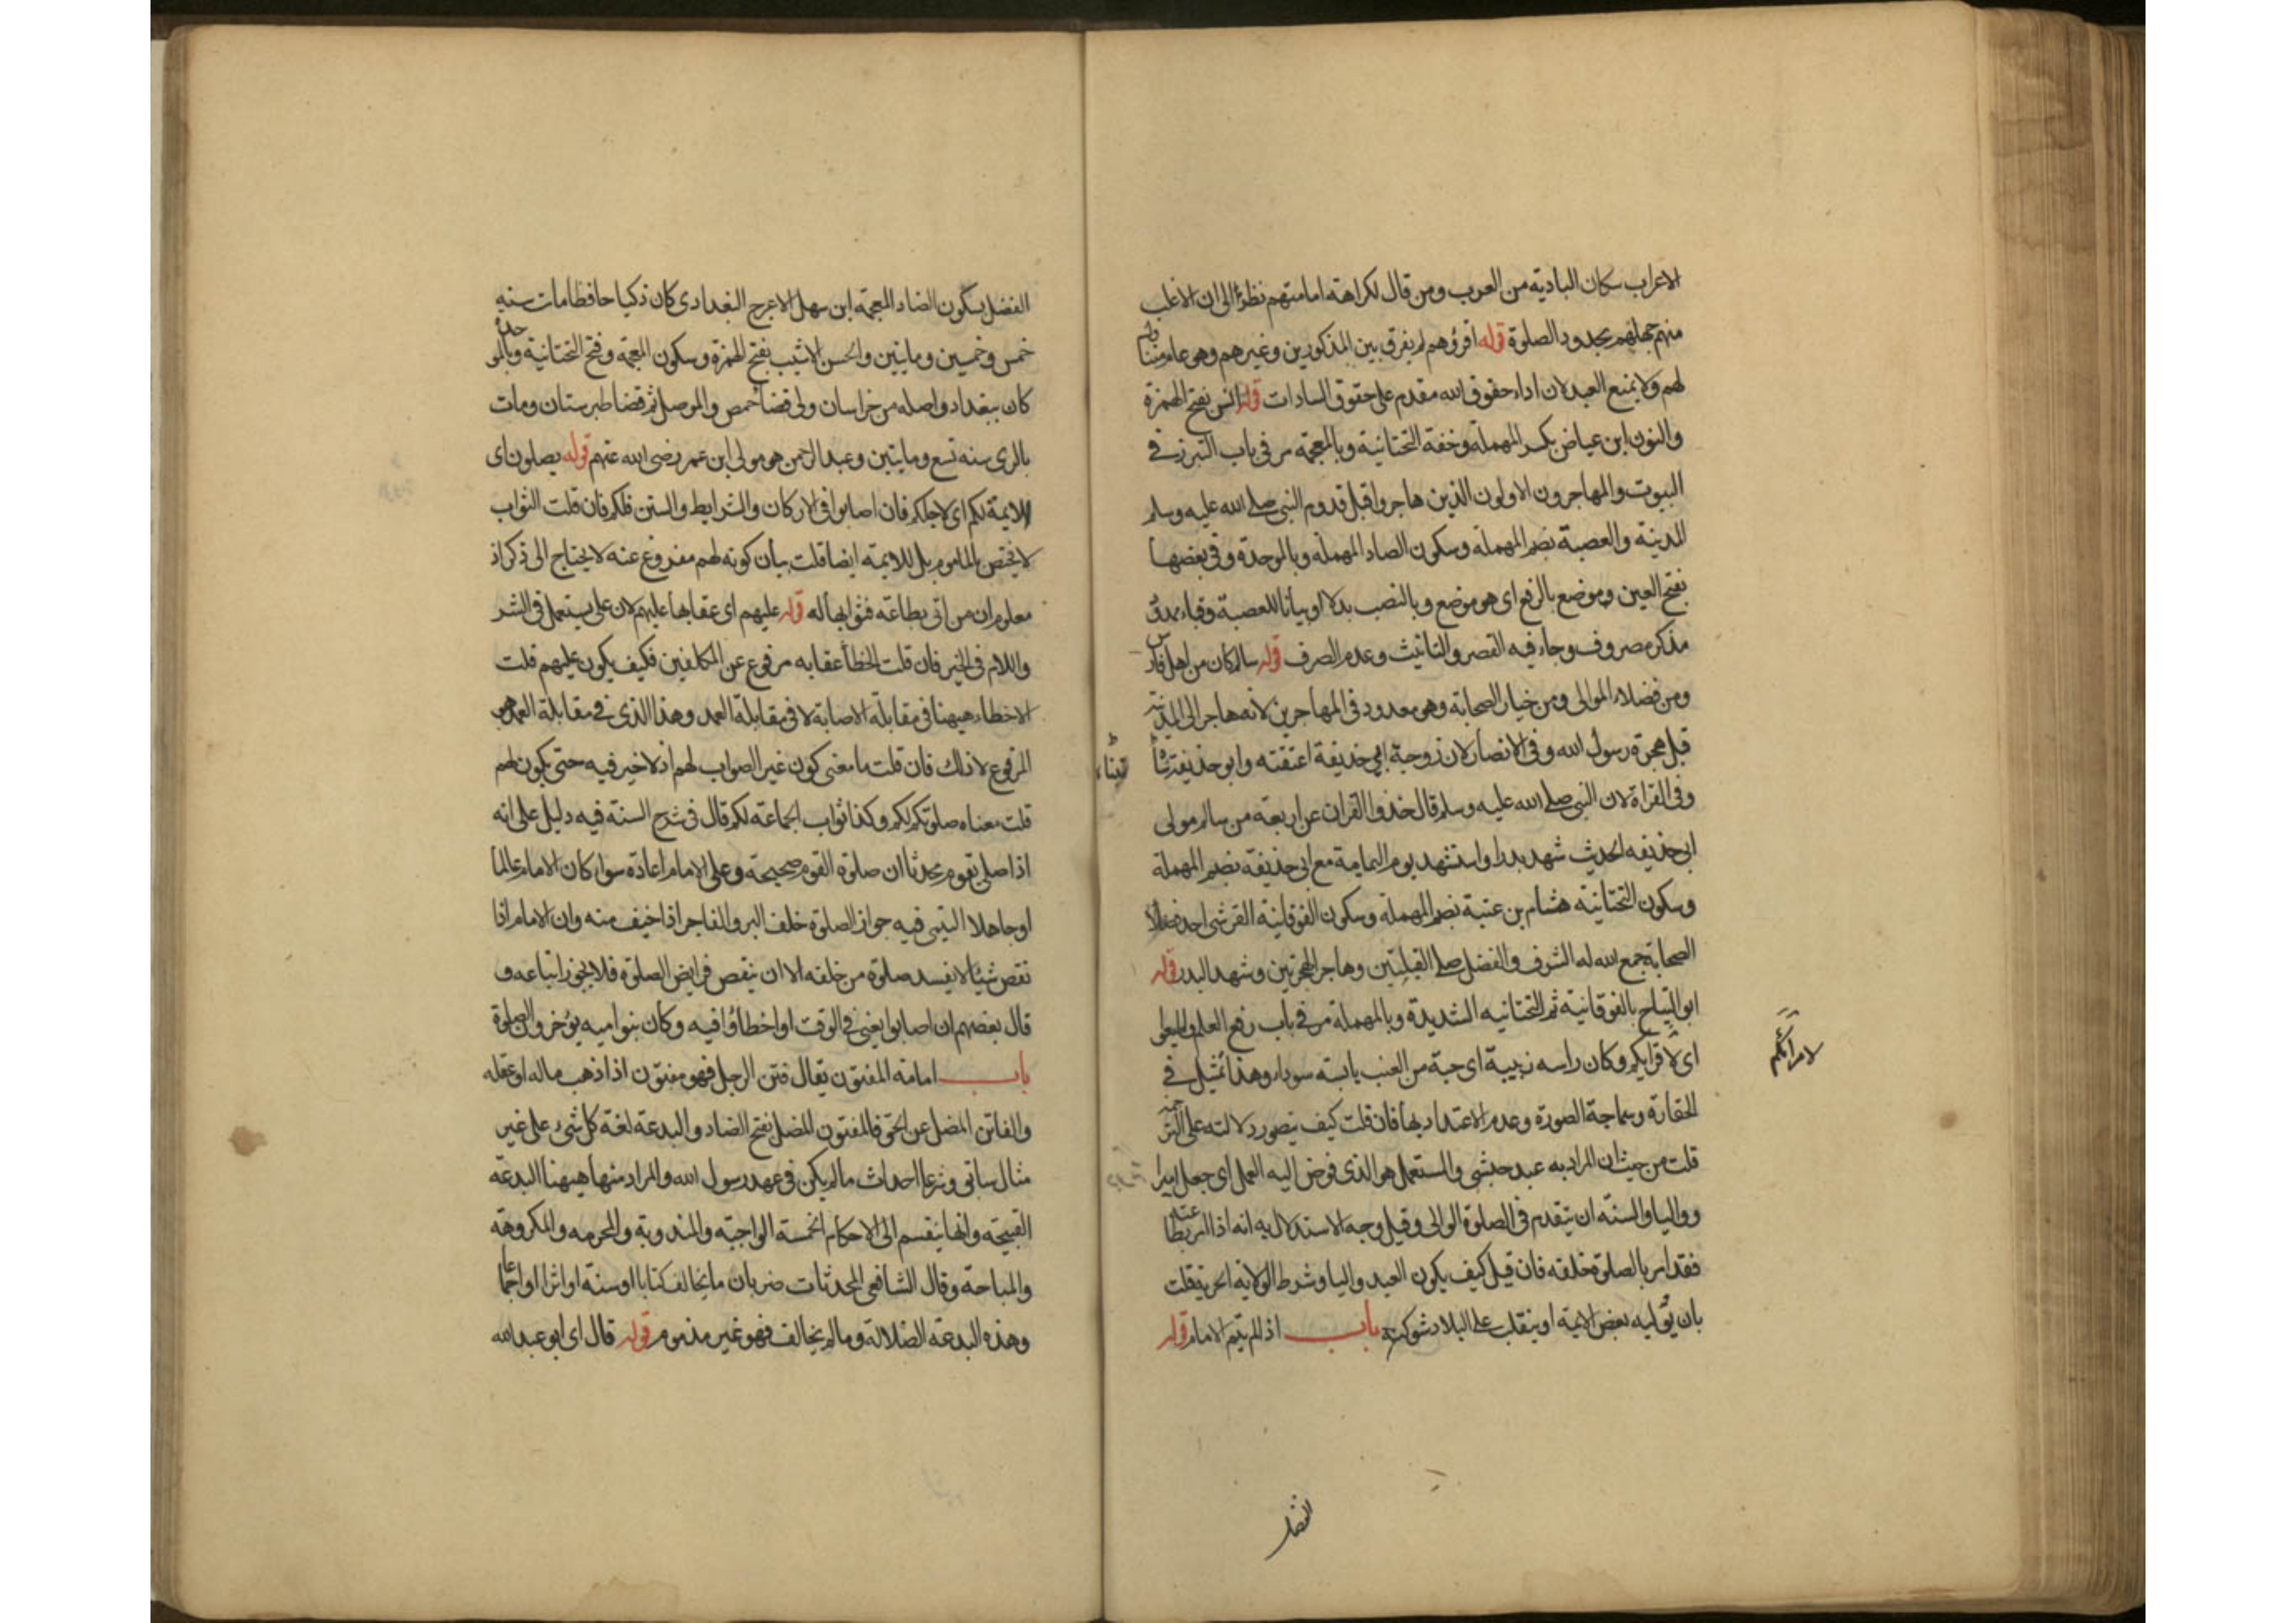 الاعراب سكان البادية من العرب ومن قال لكراهة امامتهم نظرا الى ان الاغلب
منهم جهلهم بحدود الصلوة قوله اقرؤهم لم يفرق بين المذكورين وغيرهم وهو عام متناول
لهم ولا يمنع العبد لان اداء حقوق الله مقدم على حقوق السادات قوله انس بفتح الهمزة
والنون ابن عياض بكسر المهملة وخفة التحتانية وبالمعجمة مر في باب التبرز في
البيوت والمهاجرون الاولون الذين هاجروا قبل قدوم النبي صلى الله عليه وسلم
المدينة والعصبة بضم المهملة وسكون الصاد المهملة وبالموحدة وفي بعضها
بفتح العين وموضع بالرفع اى هو موضع وبالنصب بدلا او بيانا للعصبة وقباء يمد
مذكر مصروف وجاء فيه القصر والتانيث وعدم الصرف قوله سالم كان من اهل فارس
ومن فضلاء الموالى ومن خيار الصحابة وهو معدود فى المهاجرين لانه هاجر الى المدينة
قبل هجرة رسول الله وفى الانصار لان زوجة ابي حذيفة اعتقته وابو حذيفة
وفى القراة لان النبى صلى الله عليه وسلم قال خذوا القران عن اربعة من سالم مولى
ابى حذيفه الحديث شهد بدرا واستشهد يوم اليمامة مع ابى حذيفة بضم المهملة
وسكون التحتانية هشام بن عتبة بضم المهملة وسكون الفوقانية القرشى احد فضلاء
الصحابة جمع الله له الشرف والفضل صلى القبلتين وهاجر الهجرتين وشهد البدر قوله
ابو التياح بالفوقانية ثم التحتانيه الشديدة وبالمهملة مر فى باب رفع العلم
اى لاقرايكم وكان راسه زبيبة اى حبة من العنب يابسة سوداء وهذا تمثيل فى
الحقارة وسماجة الصورة وعدم الاعتداد بها فان قلت كيف يتصور دلالته على الترجمة
قلت من حيث ان المراد به عبد حبشى والمستعمل هو الذى فوض اليه العمل اى جعل اميرا
وواليا والسنة ان يتقدم فى الصلوة الوالى وقيل وجه الاستدلال به انه اذا امر بطاعته
فقد امر بالصلوة خلفه فان قيل كيف يكون العبد واليا وشرط الولاية الحرية قلت
بان يوليه بعض الايمة او يتغلب على البلاد بشوكته باب اذا لم يتم الامام قوله
لامرائكم
الفضل
الفضل بسكون الضاد المعجمة ابن سهل الاعرج البغدادى كان ذكيا حافظا مات سنه
خمس وخمسين ومايتين والحسن الاشيب بفتح الهمزة وسكون المعجمة وفتح التحتانية وبالموحدة
كان ببغداد واصله من خراسان ولى قضا حمص والموصل ثم قضا طبرستان ومات
بالرى سنه تسع ومايتين وعبد الرحمن هو مولى ابن عمر رضى الله عنهم قوله يصلون اى
الايمة لكم اى لاجلكم فان اصابوا فى الاركان والشرايط والسنن فلكم فان قلت الثواب
لا يختص بالماموم بل للايمة ايضا قلت بيان كونه لهم مفروغ عنه لا يحتاج الى ذكر اذ
معلوم ان من اتى بطاعة فثوابها له قوله عليهم اى عقابها عليهم لان على يستعمل فى الشر
واللام فى الخير فان قلت الخطأ عقابه مرفوع عن المكلفين فكيف يكون عليهم قلت
الاخطاء هيهنا فى مقابلة الاصابة لا فى مقابلة العمد وهذا الذى فى مقابلة العمد هو
المرفوع لا ذاك فان قلت ما معنى كون غير الصواب لهم اذ لا خير فيه حتى يكون لهم
قلت معناه صلوتكم لكم وكذا ثواب الجماعة لكم قال فى شرح السنة فيه دليل على انه
اذا صلى بقوم محدثا ان صلوة القوم صحيحة وعلى الامام اعادة سوا كان الامام عالما
او جاهلا التيمى فيه جواز الصلوة خلف البر والفاجر اذا خيف منه وان الامام اذا
نقص شيئا لا يفسد صلوة من خلفه الا ان ينقص فرايض الصلوة فلا يجوز اتباعه و
قال بعضهم ان اصابوا يعنى فى الوقت او اخطاؤا فيه وكان بنو اميه يؤخرون الصلوة
باب امامة المفتون يقال فتن الرجل فهو مفتون اذا ذهب ماله او عقله
والفاتن المضل عن الحق فالمفتون المضل بفتح الضاد والبدعة لغة كل شىء على غير
مثال ساتى وشرعا احداث ما لم يكن فى عهد رسول الله والمراد منها هيهنا البدعة
القبيحة وانها ينقسم الى الاحكام الخمسة الواجبة والمندوبة والمحرمه والمكروهة
والمباحة وقال الشافعى المحدثات ضربان ما يخالف كتابا او سنة او اثرا او اجماعا
وهذه البدعة الضلالة وما لم يخالف فهو غير مذموم قوله قال اى ابو عبد الله